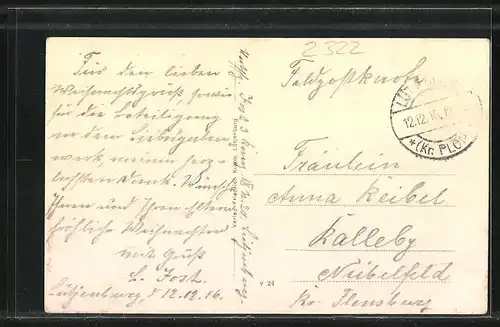 2322
Für den lieben
Weihnachtsgruß, sowie
für die Beteiligung
an dem Liebesgaben
werk meinen herz
lichsten Dank. Wünsche
Ihnen und Ihren Eltern
fröhliche Weihnachten
mit Gruß
L. Jost.
Lütjenburg, d 12.12.16.
Feldpostkarte
12.12.16.
*(Kr. PLÖN
Fräulein
Anna Keibel
Kalleby
Nübelfeld
Kr. Flensburg
V 24
Lütjenburg